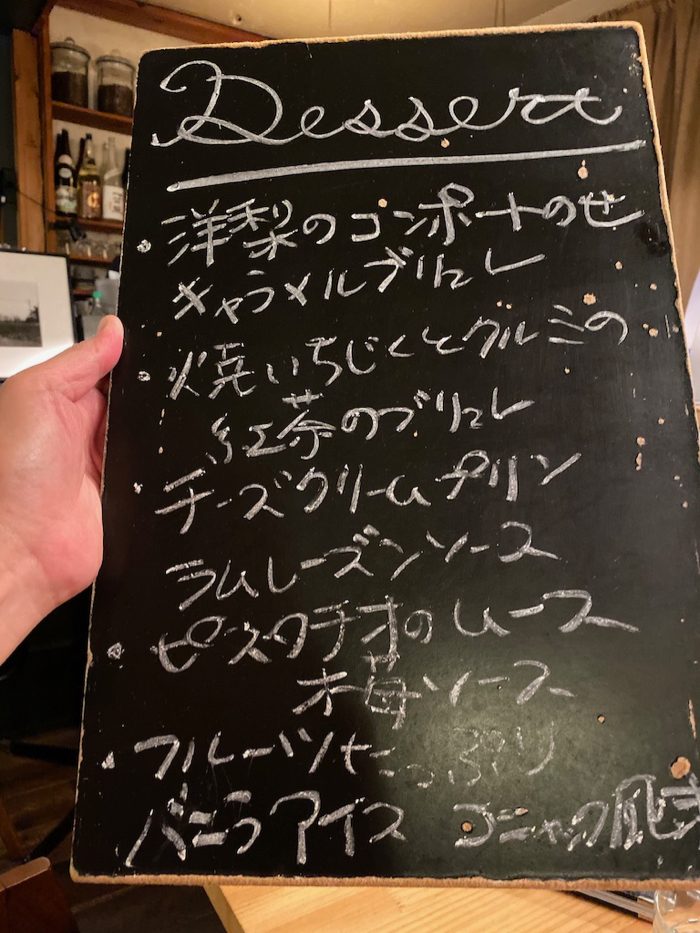 Dessert
・洋梨のコンポートのせ
キャラメルブリュレ
・焼いちじくとクルミの
紅茶のブリュレ
・チーズクリームプリン
ラムレーズンソース
・ピスタチオのムース
木苺ソース
・フルーツたっぷり
バニラアイス コニャック風味